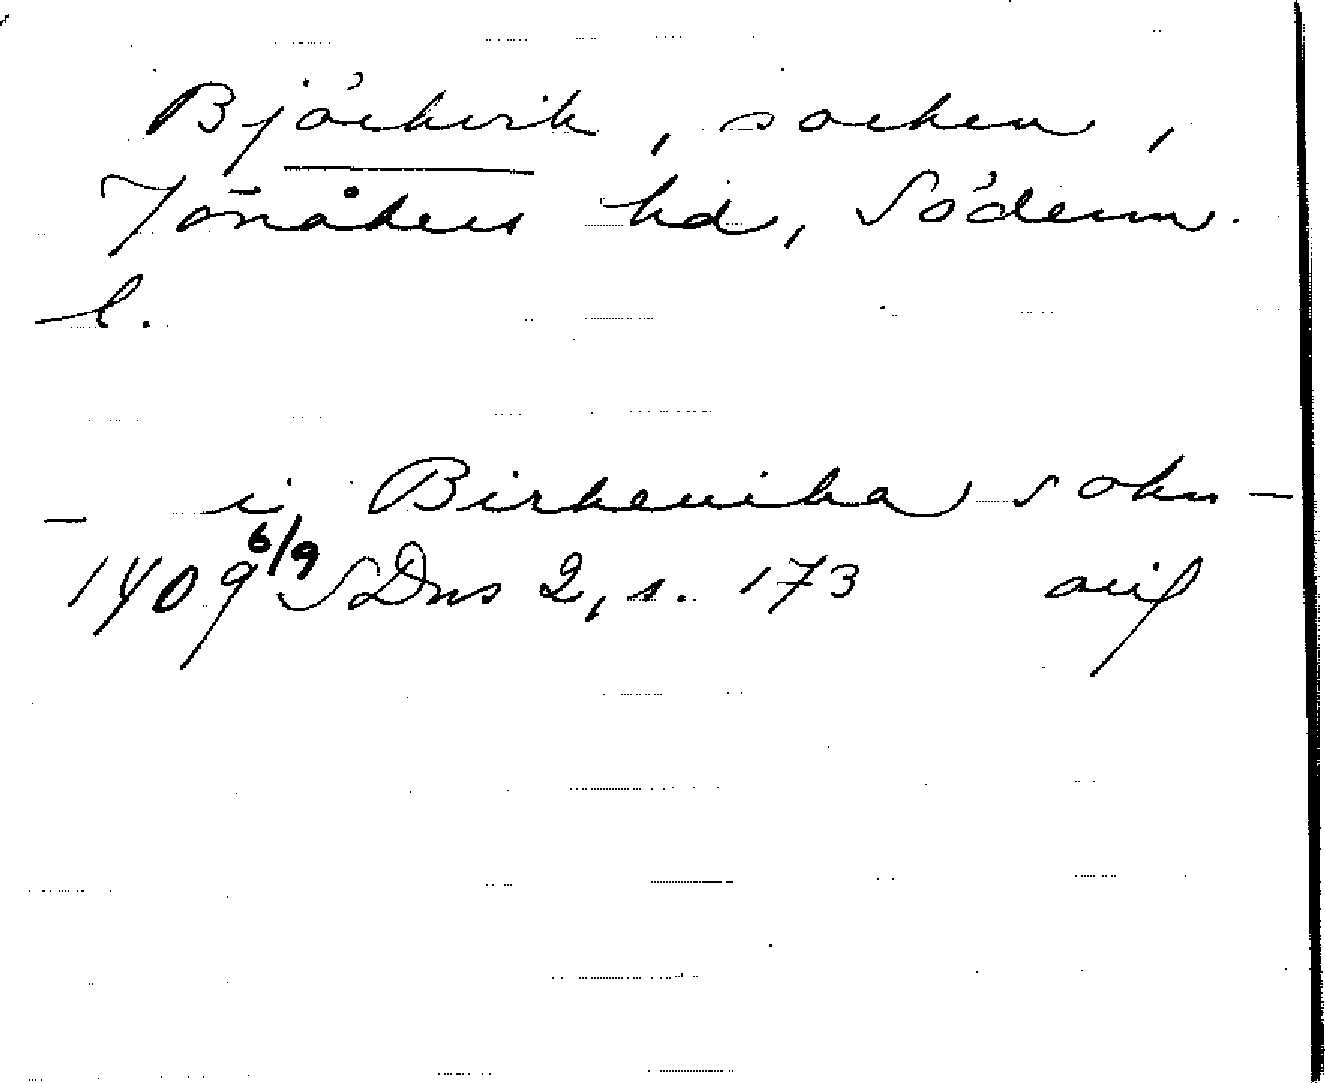 Björkvik, socken,
Jönåkers hd, Söderm.
l.
– i Birkeuika sokn –
1409 6/9 SDns 2, s. 173 orig